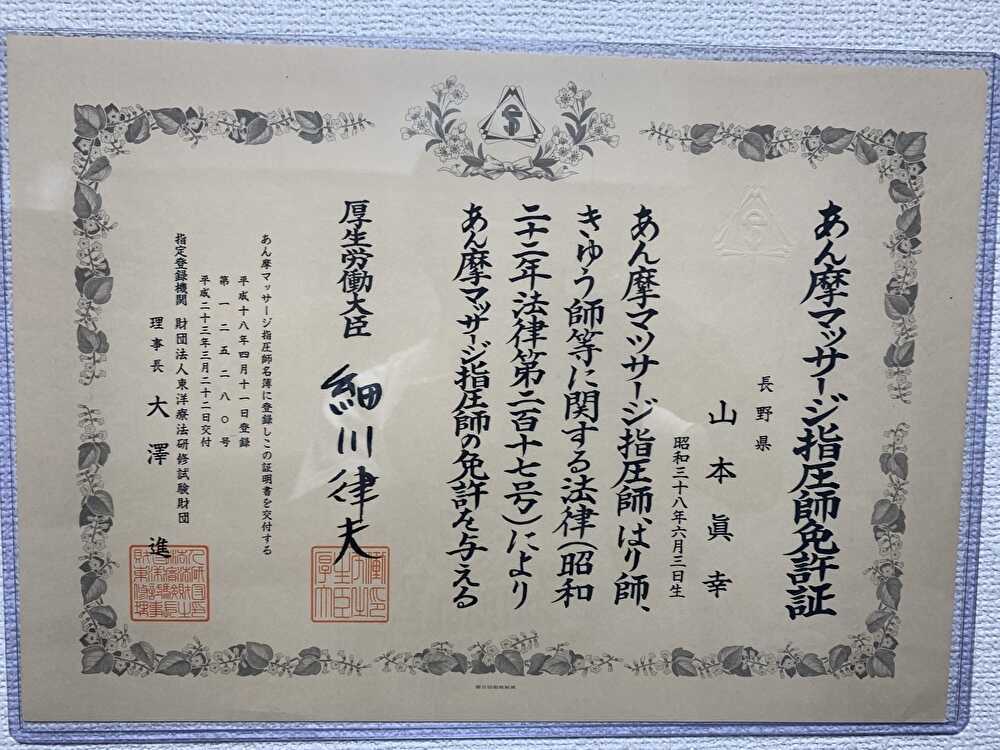 あん摩マッサージ指圧師免許証
長野県
山本眞幸
昭和三十八年六月三日生
あん摩マッサージ指圧師、はり師、
きゆう師等に関する法律（昭和
二十二年法律第二百十七号）により
あん摩マッサージ指圧師の免許を与える
厚生労働大臣 細川律夫
あん摩マッサージ指圧師名簿に登録しこの証明書を交付する
平成十八年四月十一日登録
第一二五二八〇号
平成二十三年三月二十二日交付
指定登録機関 財団法人東洋療法研修試験財団
理事長 大澤 進